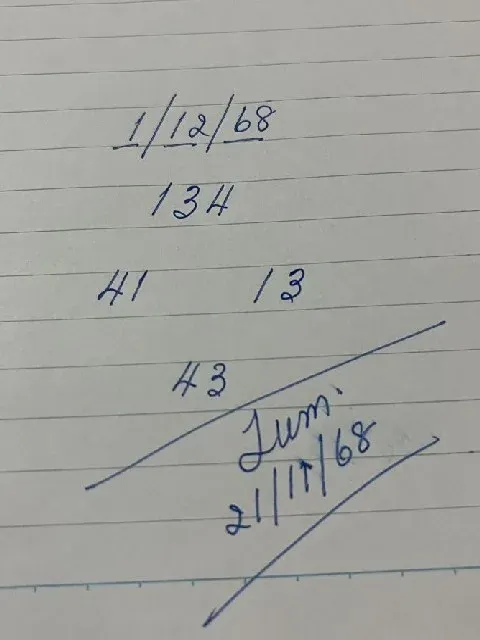 1/12/68
134
41 13
43
21/11/68